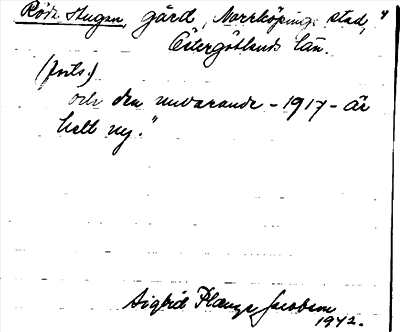 Röda Stugan, gård, Norrköpings stad, 4
Östergötlands län.
(forts.)
och den nuvarande - 1917 - är
helt ny."
Sigbrit Plænge Jacobson
1942.